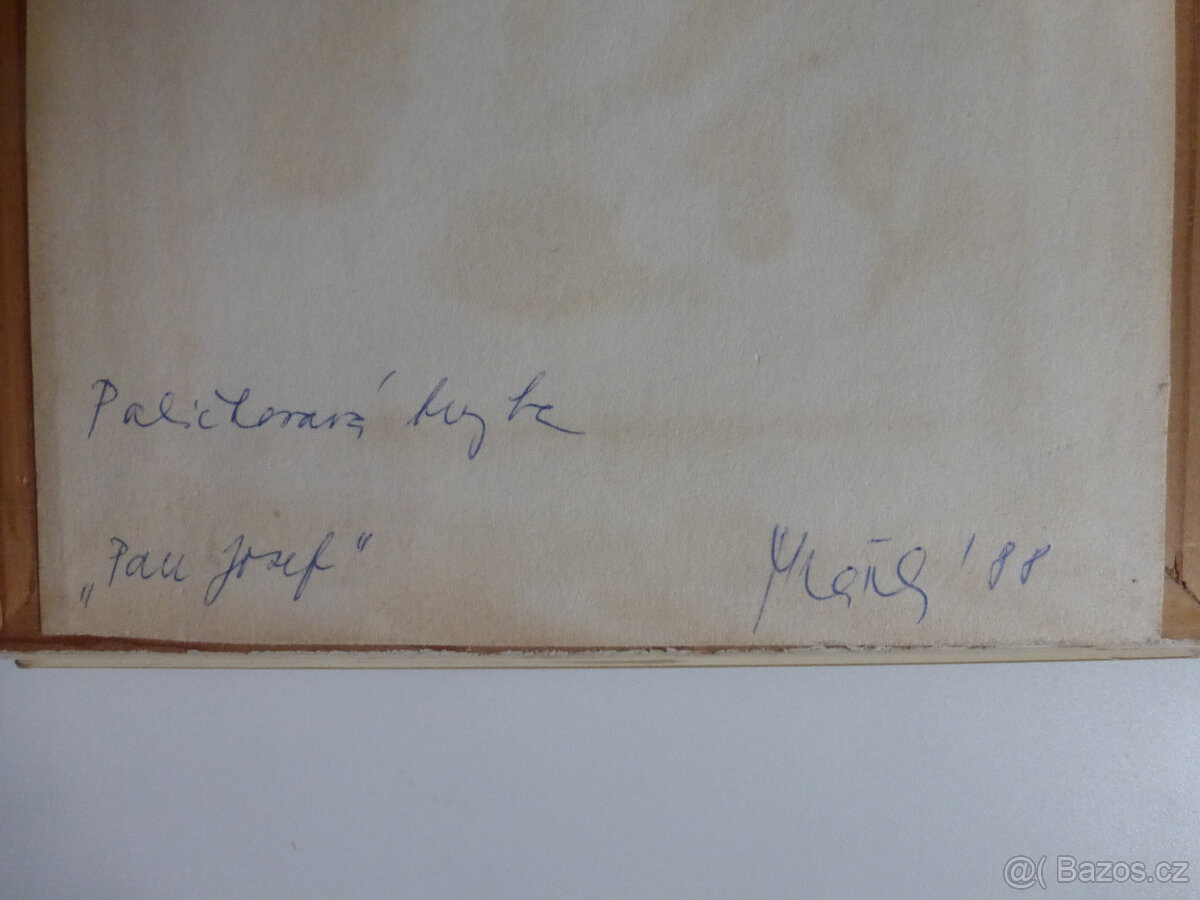 Paličkovaná krajka
„Pan Josef"
'88
@( Bazos.cz